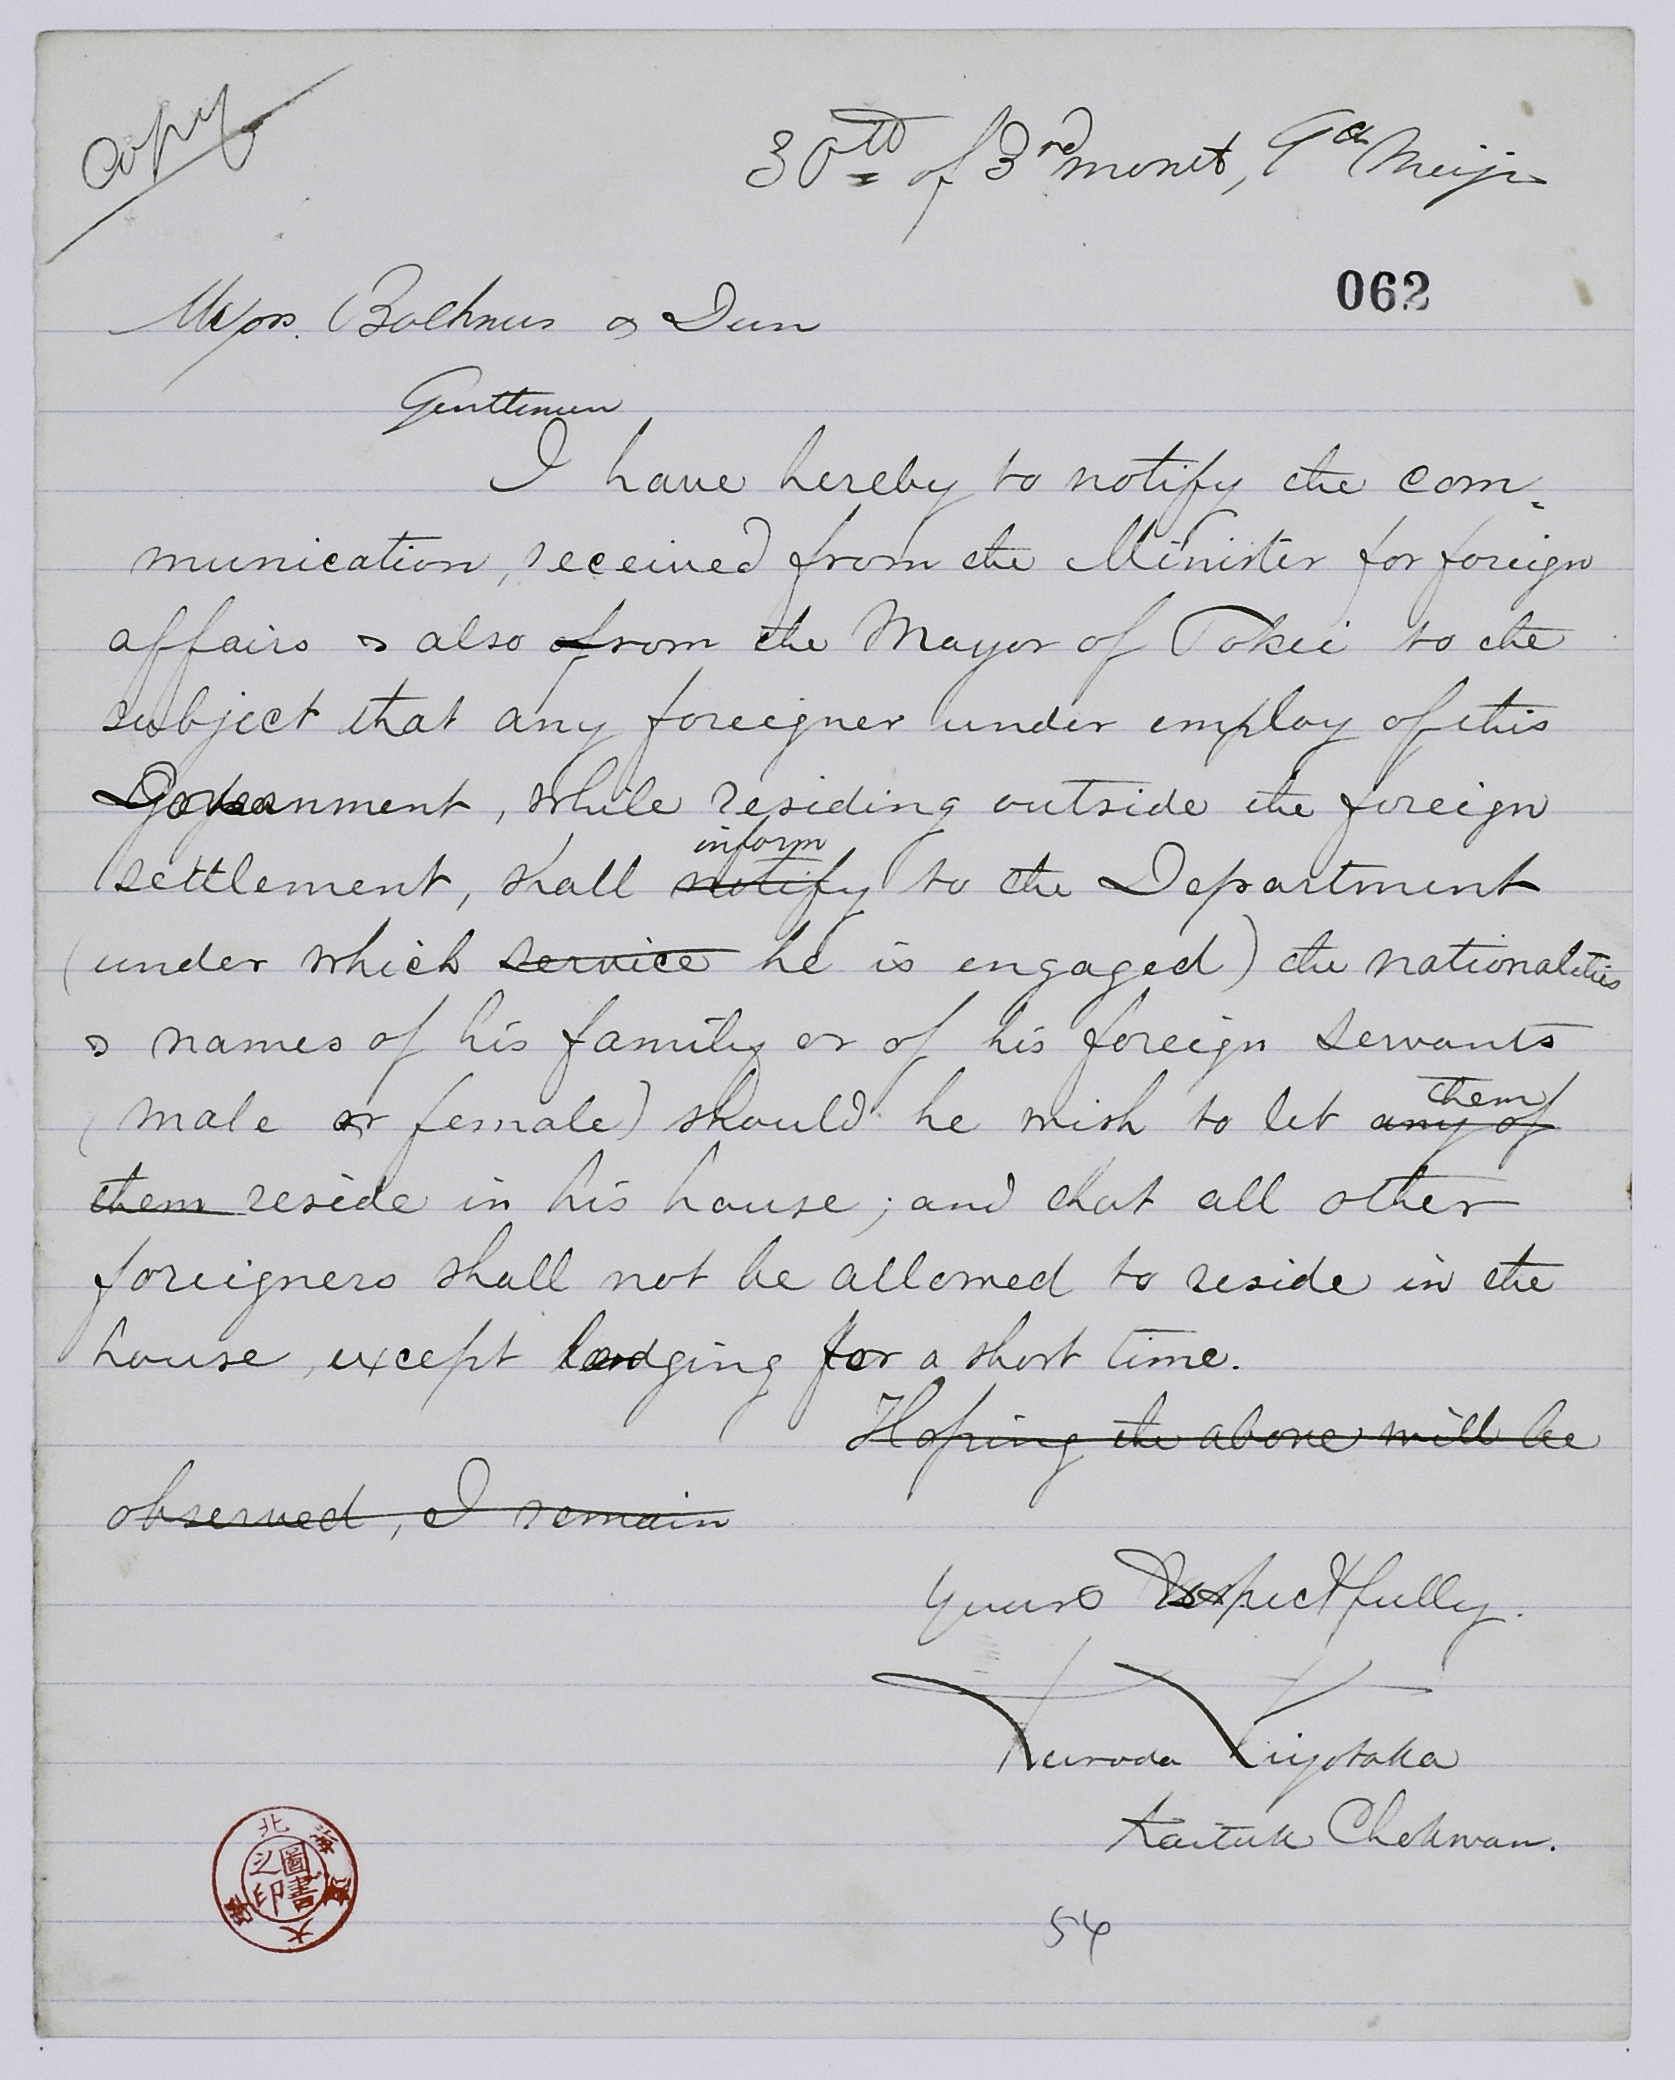 Copy
30th of 3rd month, 9th Meiji
062
Messrs. Boehmer & Dun
Gentlemen
I have hereby to notify the com=
munication, received from the Minister for foreign
affairs & also from the Mayor of Tokei to the
subject that any foreigner under employ of this
Government, while residing outside the foreign
inform
settlement, shall notify to the Department
(under which service he is engaged) the nationalities
& names of his family or of his foreign servants
them
(male or female) should he wish to let any of
them reside in his house; and that all other
foreigners shall not be allowed to reside in the
house, except lodging for a short time.
Hoping the above will be
observed, I remain
Yours Respectfully.
Kuroda Kiyotaka
Kaitaku Chokwan.
54
北海道大學
圖書之印